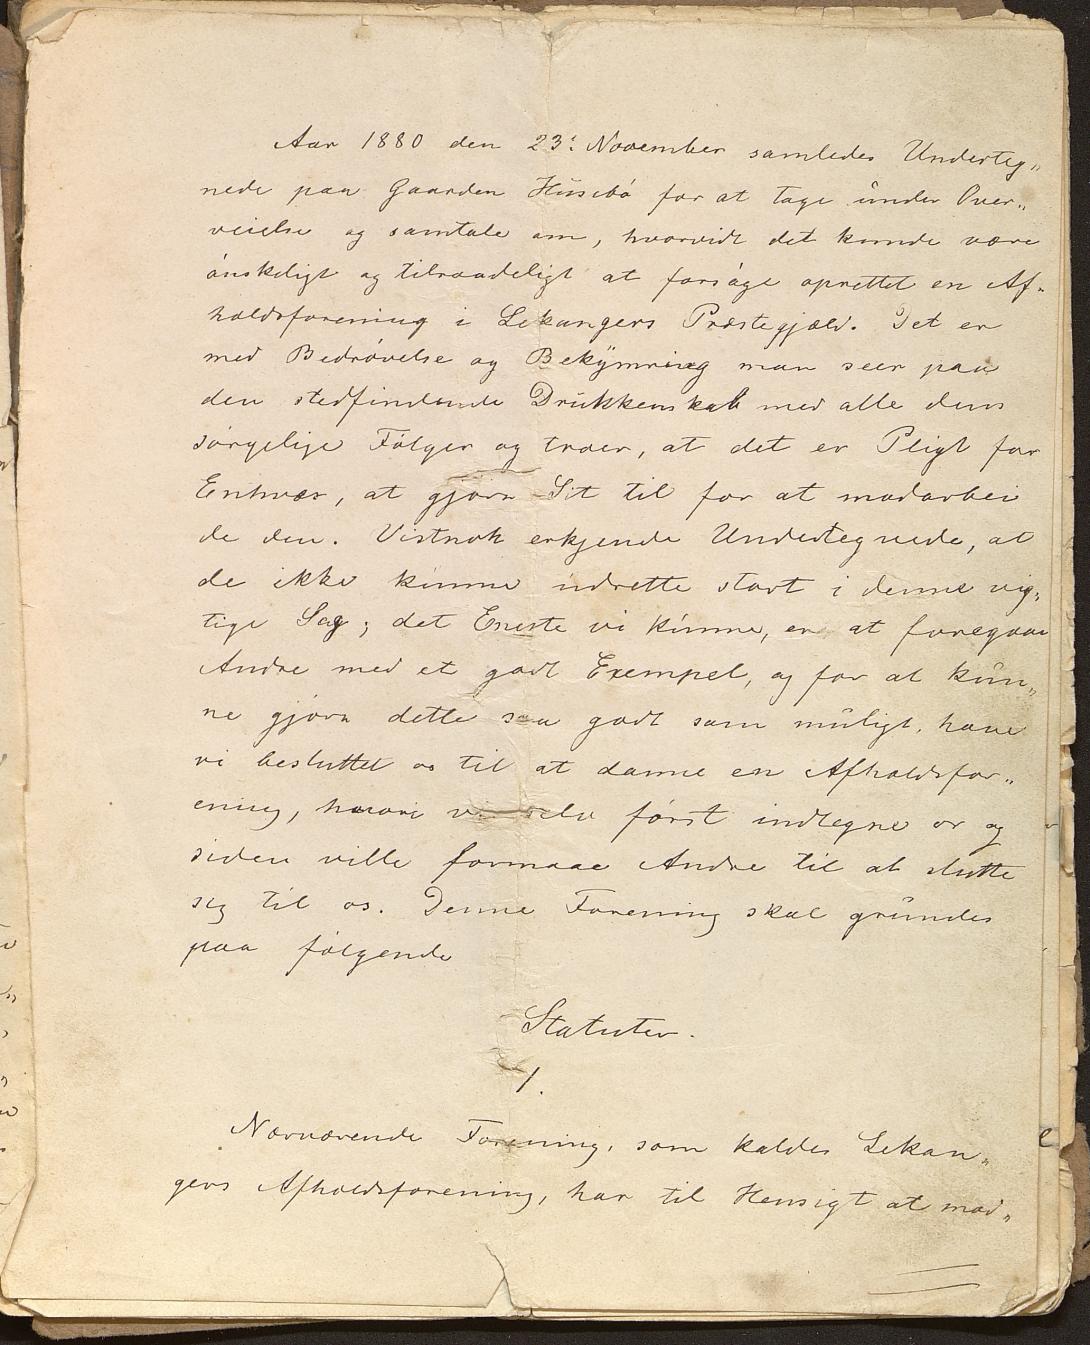 Aar 1880 den 23: November samledes Underteg„
nede paa Gaarden Husebö for at tage under Over„
veielse og samtale om, hvorvidt det kunde være
önskeligt og tilraadeligt at forsöge oprettet en Af„
holdsforening i Lekangers Præstegjæld. Det er
med Bedrövelse og Bekymring man seer paa
den stedfindende Drukkenskab med alle dens
sörgelige Fölger og troer, at det er Pligt for
Enhver, at gjöre Sit til for at modarbei
de den. Vistnok erkjende Undertegnede, at
de ikke kunne udrette stort i denne vig„
tige Sag; det Eneste vi kunne, er at foregaa
Andre med et godt Exempel, og for at kun„
ne gjöre dette saa godt som muligt, have
vi besluttet os til at danne en Afholdsfor„
ening, hvori vi selv först indtegne os og
siden ville formaae Andre til at slutte
sig til os. Denne Forening skal grundes
paa fölgende
Statuter.
1.
Nærværende Forening, som kaldes Lekan„
gers Afholdsforening, har til Hensigt at mod„